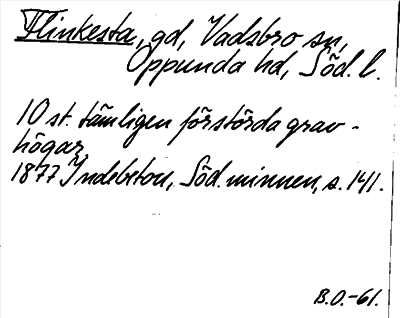 Flinkesta, gd, Vadsbro sn,
Oppunda hd, Söd. l.
10 st. tämligen förstörda grav-
högar
1877 Indebetou, Söd. minnen, s. 141.
B.O.-61.